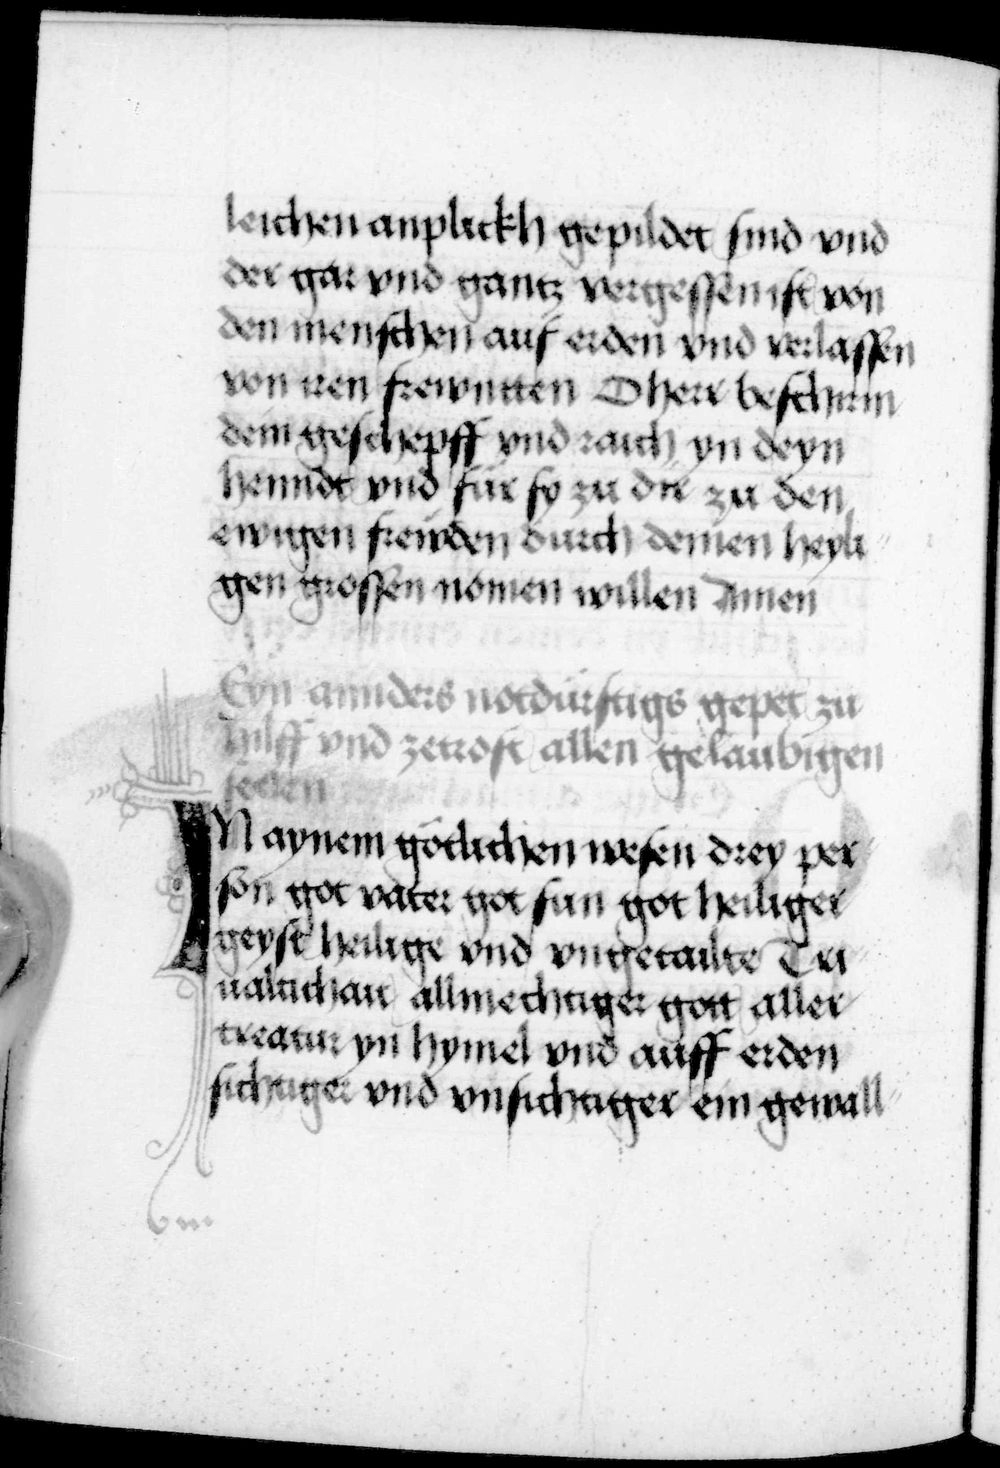 leichen anplickh gepildet sind vnd
der gar vnd gantz vergessen ist von
den menschen auf erden vnd verlassen
von iren frewntten O herr beschirm
dein geschepff vnd raich yn deyn
henndt vnd für sy zu dir zu den
ewigen frewden durch deinen heyli
gen grossen nomen willen Amen
Eyn annders notdurftigs gepet zu
hilff vnd zetrost allen gelaubigen
sellen
IN aynem götlichen wesen drey per
son got vater got sun got heiliger
geyst heilige vnd vngetailte Tri
ualtichait allmechtiger gott aller
creatur yn hymel vnd auff erden
sichtiger vnd vnsichtiger ein gewall